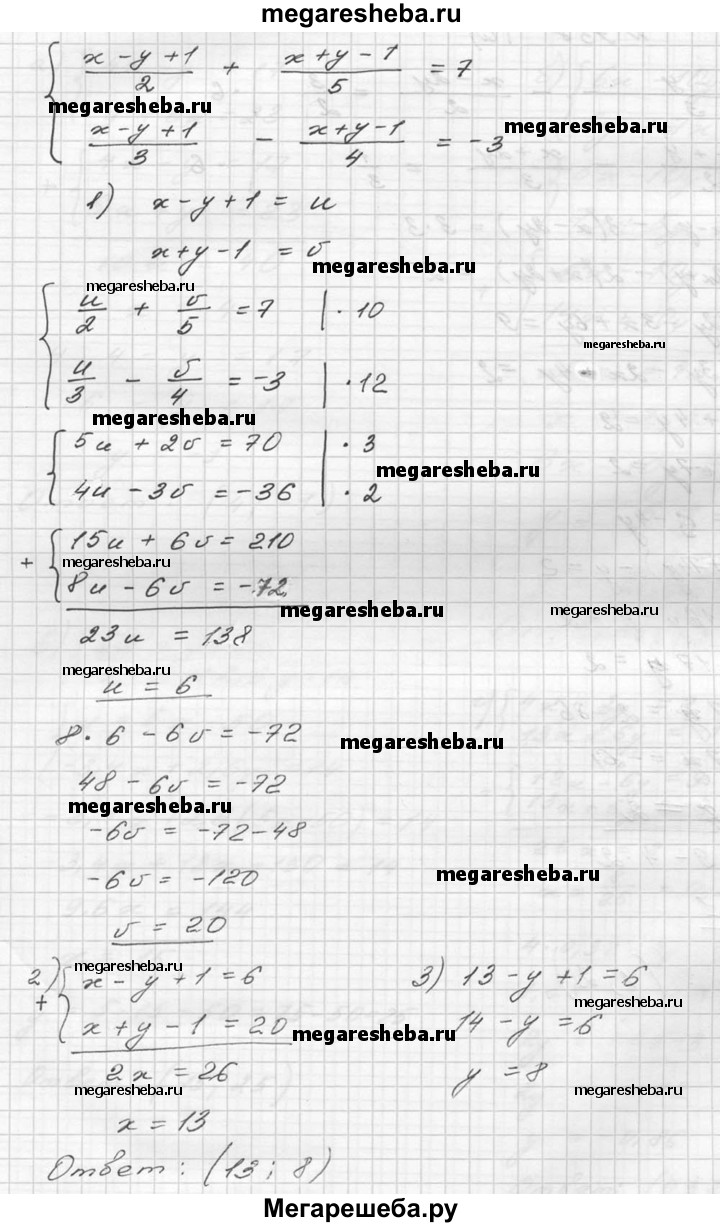 megaresheba.ru
x - y + 1 / 2 + x + y - 1 / 5 = 7
megaresheba.ru
megaresheba.ru
x - y + 1 / 3 - x + y - 1 / 4 = -3
1) x - y + 1 = u
x + y - 1 = v
megaresheba.ru
megaresheba.ru
u/2 + v/5 = 7 | · 10
megaresheba.ru
u/3 - v/4 = -3 | · 12
megaresheba.ru
5u + 2v = 70 | · 3
megaresheba.ru
4u - 3v = -36 | · 2
+ 15u + 6v = 210
megaresheba.ru
8u - 6v = -72
megaresheba.ru
megaresheba.ru
23u = 138
megaresheba.ru
u = 6
8 · 6 - 6v = -72
megaresheba.ru
48 - 6v = -72
megaresheba.ru
-6v = -72 - 48
-6v = -120
megaresheba.ru
v = 20
megaresheba.ru
2) x - y + 1 = 6
+ x + y - 1 = 20
2x = 26
megaresheba.ru
x = 13
3) 13 - y + 1 = 6
megaresheba.ru
14 - y = 6
megaresheba.ru
y = 8
megaresheba.ru
Ответ: (13; 8)
Мегарешеба.ру